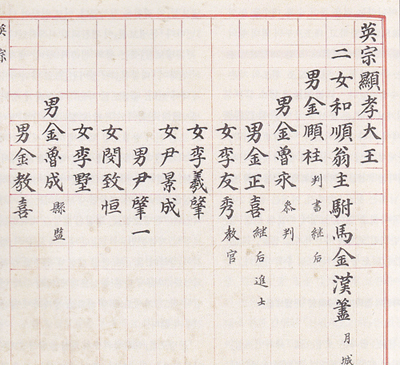 英宗顯孝大王
二女和順翁主駙馬金漢藎月城
男金頤柱判書継后
男金魯永參判
男金正喜継后進士
女李友秀教官
女李羲肇
女尹景成
男尹肇一
女閔致恒
女李墅
男金魯成縣監
男金教喜
英宗